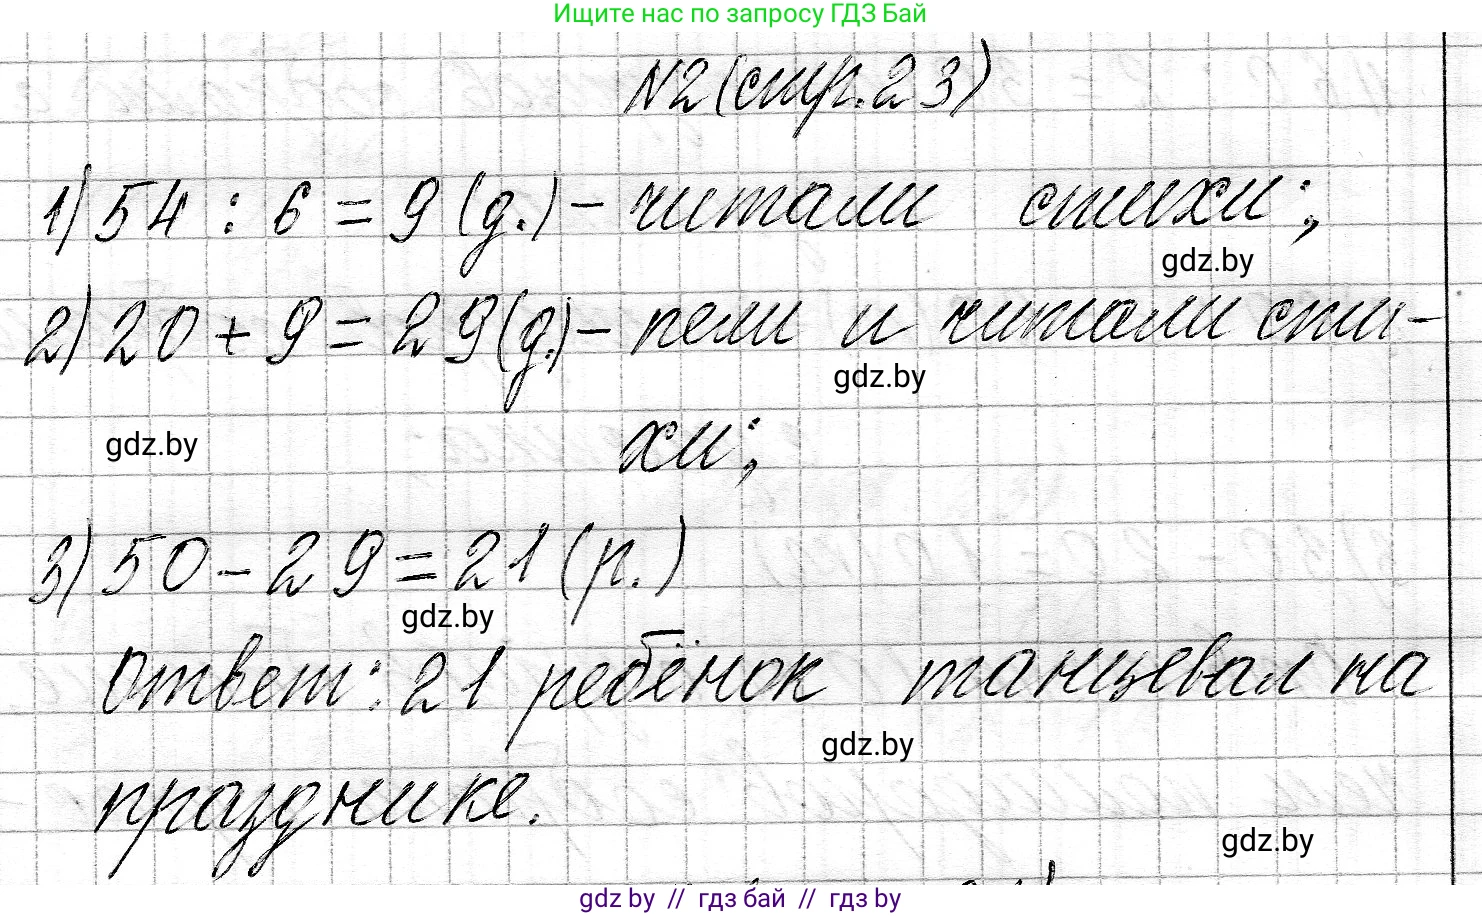 Ищите нас по запросу ГДЗ Бай
№2 (стр. 23)
1) 54 : 6 = 9 (д.) - читали стихи;
gdz.by
2) 20 + 9 = 29 (д.) - пели и читали сти-
gdz.by
gdz.by
хи;
3) 50 - 29 = 21 (р.)
gdz.by
Ответ: 21 ребёнок танцевал на
gdz.by
празднике.
gdz.by
gdz by // гдз бай // гдз by